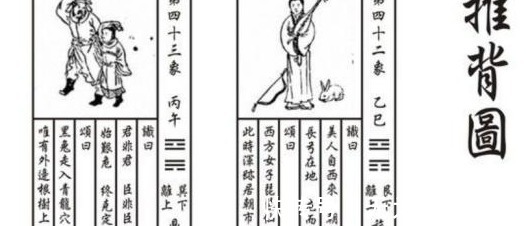 推背圖
第四十二象 乙巳 ䷷ 艮下 離上
讖曰
美人自西來 朝
長弓在地 而
頌曰
西方女子琵 仙
此時渾跡居朝市
第四十三象 丙午 ䷱ 巽下 離上
讖曰
君非君 臣非臣
始艱危 終克定
頌曰
黑兔走入青龍穴
唯有外邊根樹上